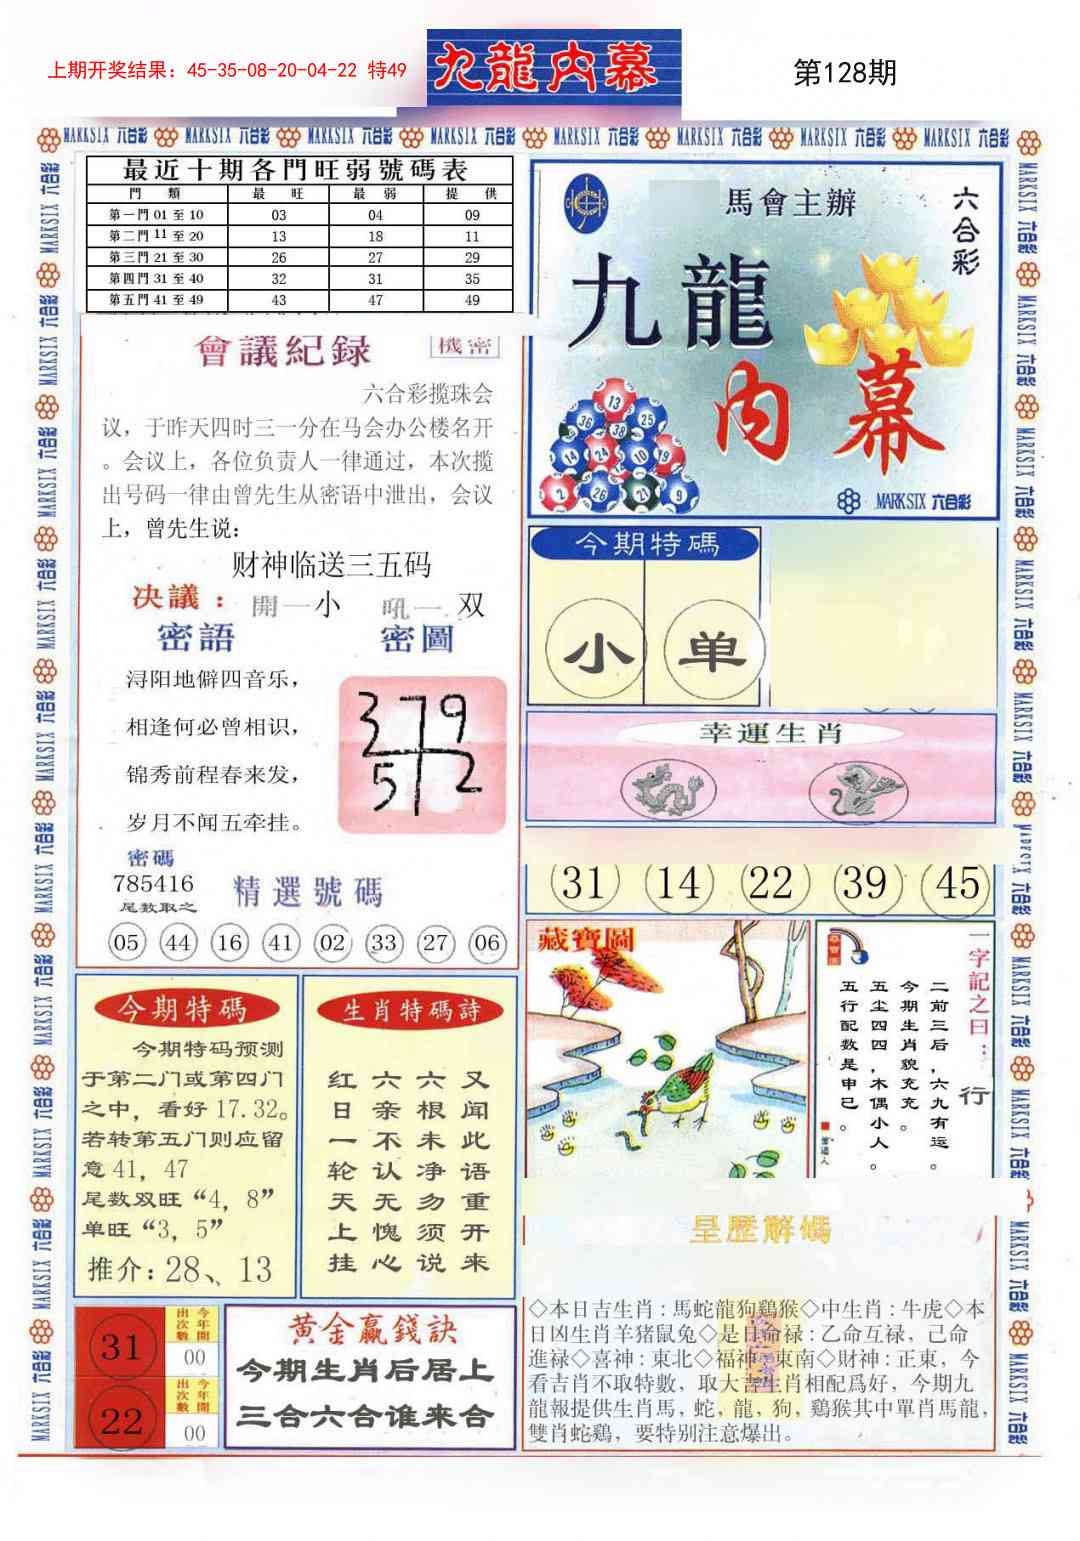 上期开奖结果：45-35-08-20-04-22 特49
九龍内幕
第128期
MARKSIX 六合彩 MARKSIX 六合彩 MARKSIX 六合彩 MARKSIX 六合彩 MARKSIX 六合彩 MARKSIX 六合彩 MARKSIX 六合彩 MARKSIX 六合彩
最近十期各門旺弱號碼表
門類 最旺 最弱 提供
第一門 01 至 10 03 04 09
第二門 11 至 20 13 18 11
第三門 21 至 30 26 27 29
第四門 31 至 40 32 31 35
第五門 41 至 49 43 47 49
會議紀録 機密
六合彩揽珠会
议，于昨天四时三一分在马会办公楼名开
。会议上，各位负责人一律通过，本次揽
出号码一律由曾先生从密语中泄出，会议
上，曾先生说：
财神临送三五码
决議：開一小 吼一 双
密語 密圖
浔阳地僻四音乐，
相逢何必曾相识，
锦秀前程春来发，
岁月不闻五牵挂。
379
5 2
密碼
785416
尾数取之
精選號碼
05 44 16 41 02 33 27 06
馬會主辦
六合彩
九龍
内幕
13
36 25
14 24 10 19
2 26 21 9
MARKSIX 六合彩
今期特碼
小 单
幸運生肖
31 14 22 39 45
今期特碼
今期特码预测
于第二门或第四门
之中，看好 17.32。
若转第五门则应留
意 41，47
尾数双旺“4，8”
单旺“3，5”
推介：28、13
生肖特碼詩
又闻此语重开来
六根未净勿须说
六亲不认无愧心
红日一轮天上挂
藏寶圖
一字記之曰：行
二前三后，六九有运。
今期生肖貌充充。
五尘四四，木偶小人。
五行配数是申巳。
31 今年開出次數 00
22 今年開出次數 00
黄金赢錢訣
今期生肖后居上
三合六合谁来合
皇歷解碼
◇本日吉生肖：馬蛇龍狗鷄猴◇中生肖：牛虎◇本
日凶生肖羊猪鼠兔◇是日命禄：乙命互禄，己命
進禄◇喜神：東北◇福神：東南◇財神：正東，今
看吉肖不取特數，取大吉生肖相配爲好，今期九
龍報提供生肖馬，蛇，龍，狗，鷄猴其中單肖馬龍，
雙肖蛇鷄，要特别注意爆出。